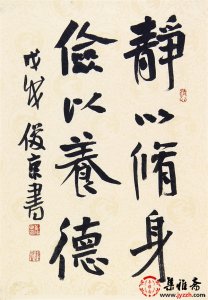 靜以脩身
儉以養德
戊戌俊京書
集雅斋
www.jyzzh.com